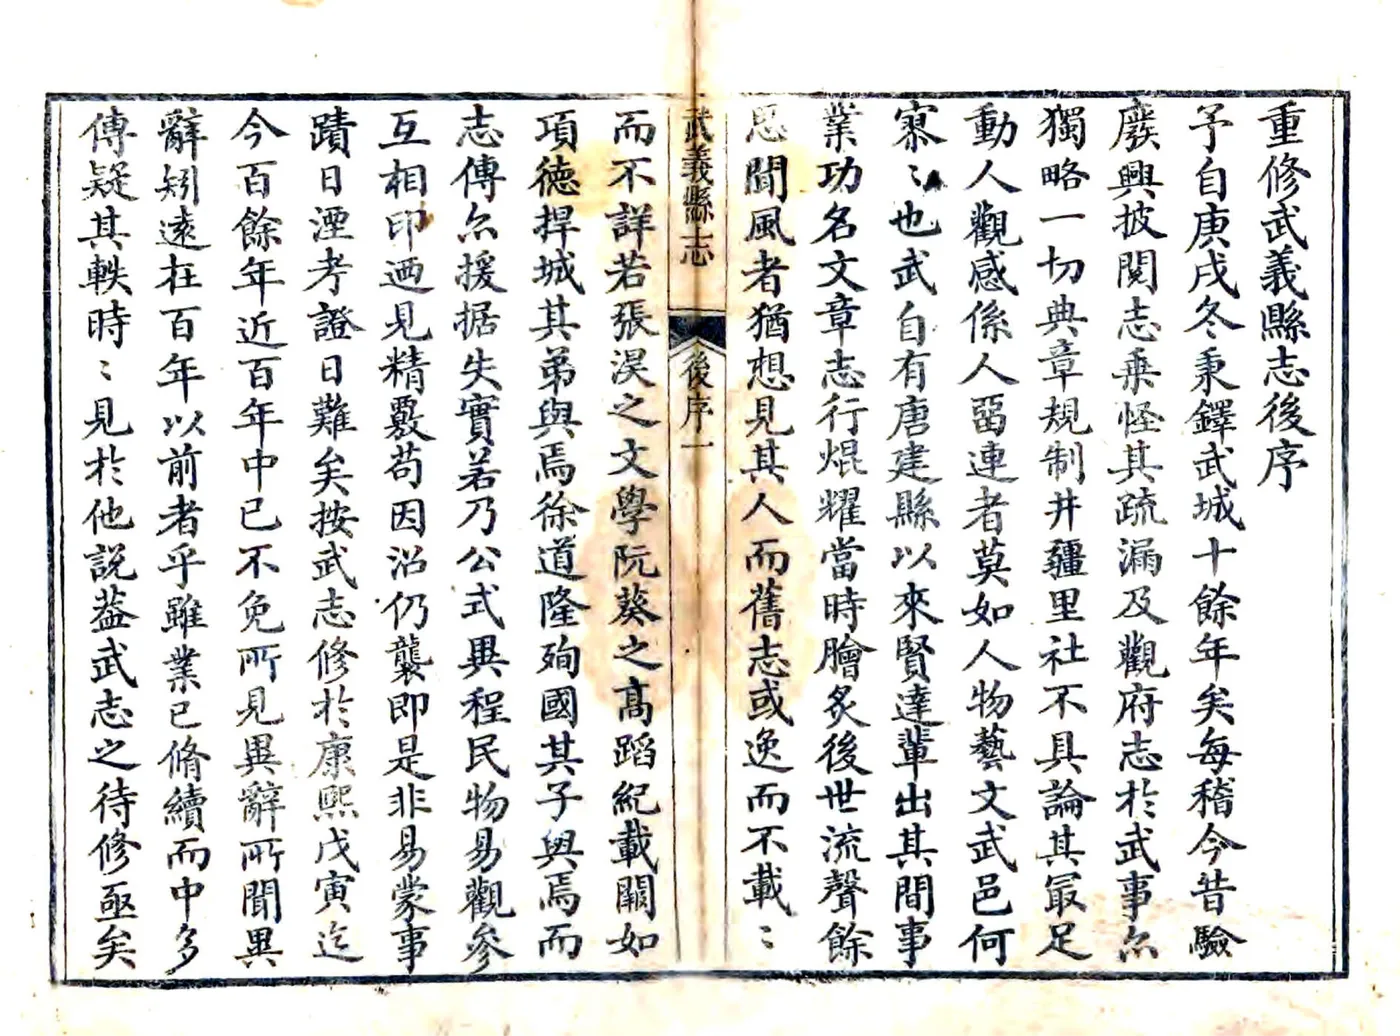 重修武義縣志後序
予自庚戌冬秉鐸武城十餘年矣每稽今昔驗
廢興披閱志乘怪其疏漏及觀府志於武事亦
獨略一切典章規制井疆里社不具論其最足
動人觀感係人畱連者莫如人物藝文武邑何
寥〻也武自有唐建縣以來賢達輩出其間事
業功名文章志行焜耀當時膾炙後世流聲餘
思聞風者猶想見其人而舊志或逸而不載〻
武義縣志
後序一
而不詳若張淏之文學阮葵之高蹈紀載闕如
項德捍城其弟與焉徐道隆殉國其子與焉而
志傳亦援据失實若乃公式異程民物易觀參
互相印迺見精覈苟因沿仍襲即是非易蒙事
蹟日湮考證日難矣按武志修於康熙戊寅迄
今百餘年近百年中已不免所見異辭所聞異
辭矧遠在百年以前者乎雖業已脩續而中多
傳疑其軼時〻見於他說葢武志之待修亟矣